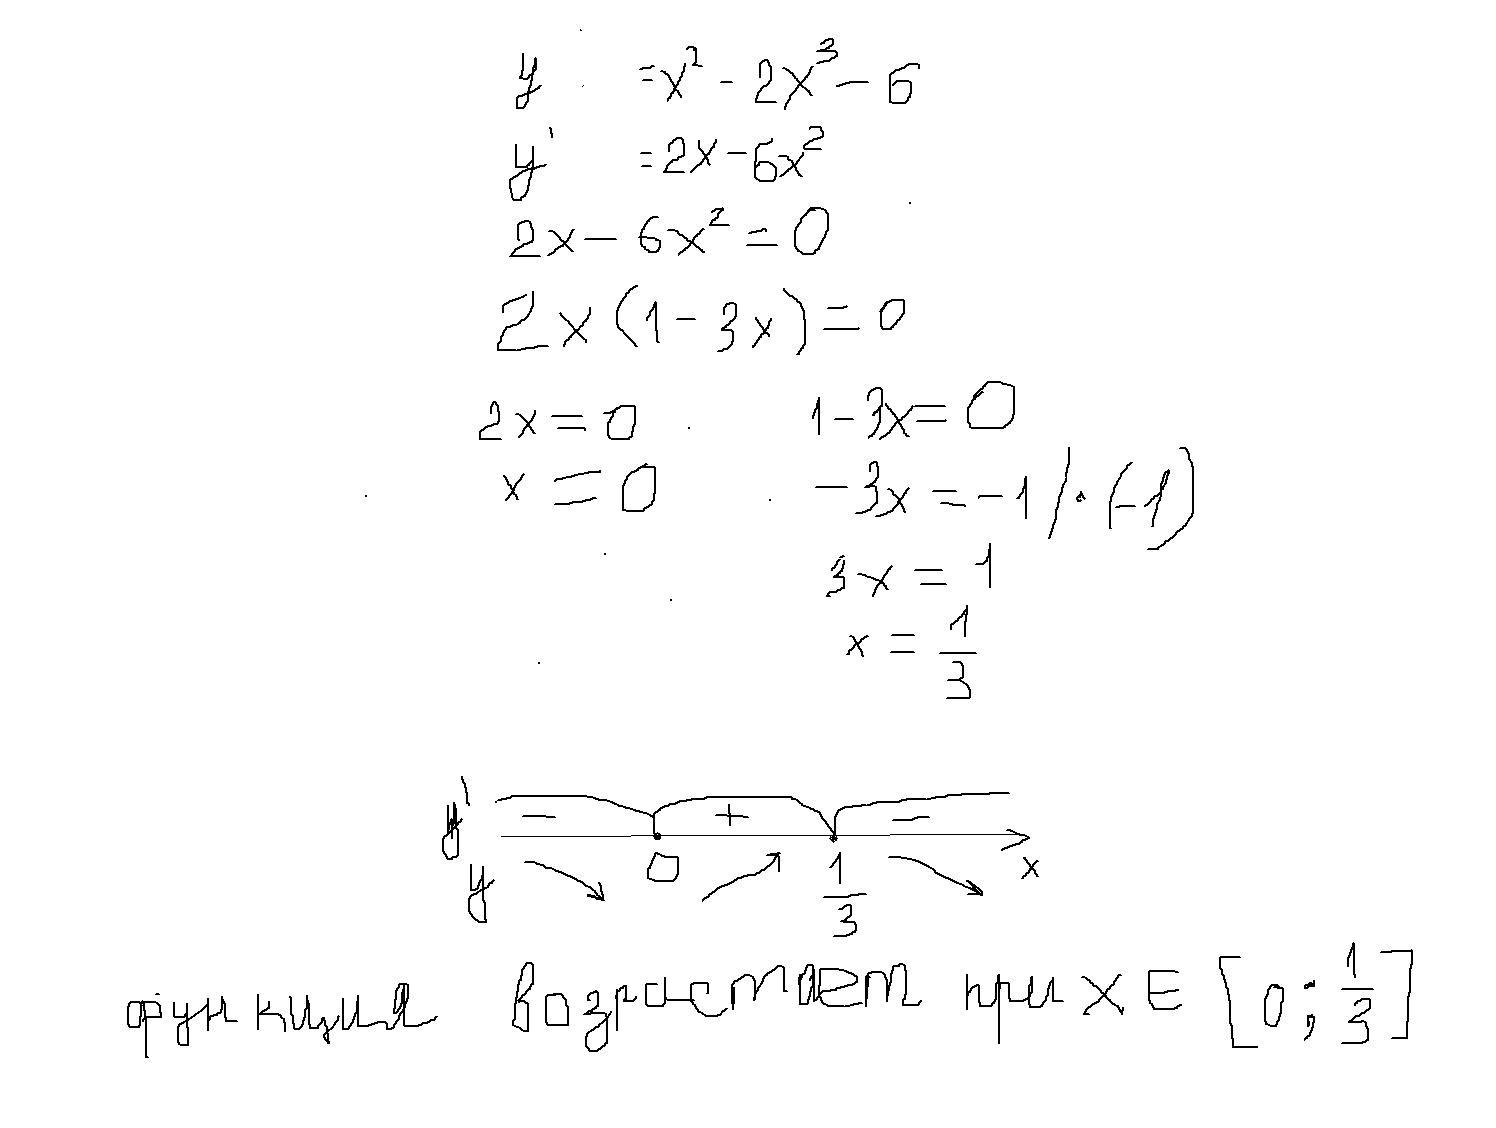 y = x² - 2x³ - 6
y' = 2x - 6x²
2x - 6x² = 0
2x(1 - 3x) = 0
2x = 0 1 - 3x = 0
x = 0 -3x = -1 / · (-1)
3x = 1
x = 1/3
y' - + -
y 0 1/3 x
функция возрастает при x ∈ [0; 1/3]